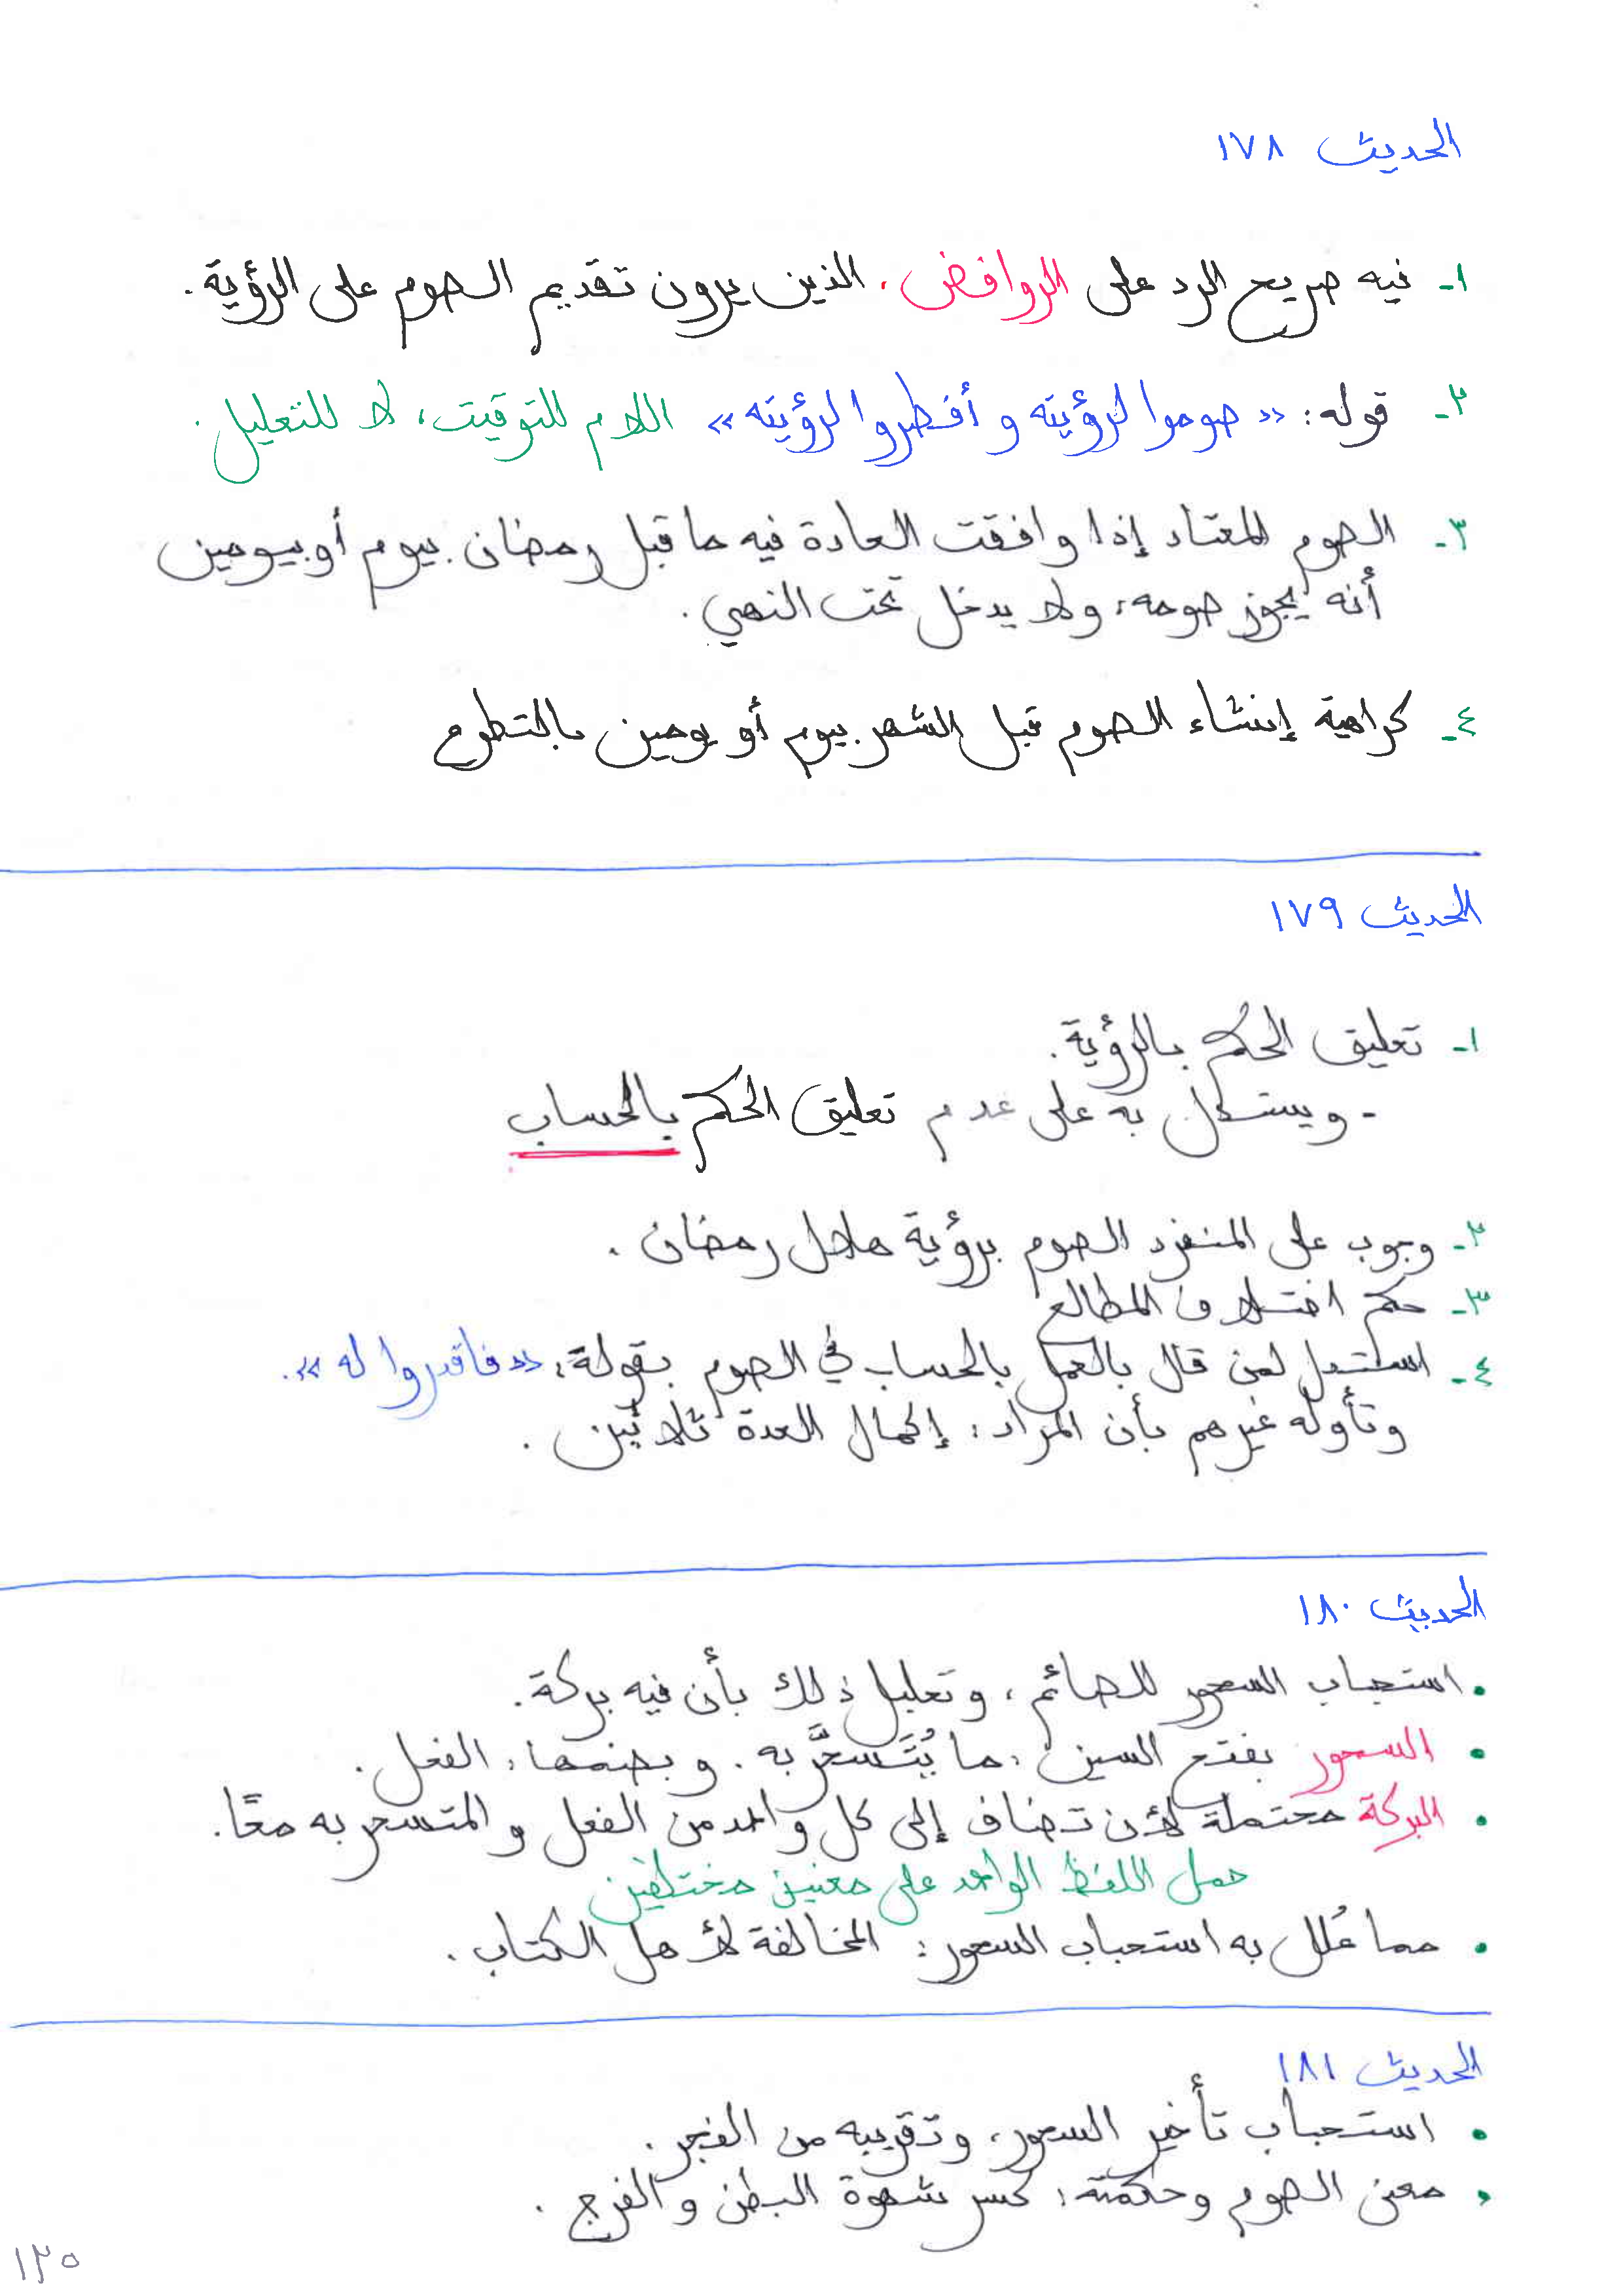 الحديث ١٧٨
١- فيه صريح الرد على الروافض، الذين يرون تقديم الصوم على الرؤية.
٢- قوله: «صوموا لرؤيته وأفطروا لرؤيته» اللام للتوقيت، لا للتعليل.
٣- الصوم المعتاد إذا وافقت العادة فيه ما قبل رمضان بيوم أو بيومين
أنه يجوز صومه، ولا يدخل تحت النهي.
٤- كراهية إنشاء الصوم قبل الشهر بيوم أو يومين بالتطوع
الحديث ١٧٩
١- تعليق الحكم بالرؤية.
- ويستدل به على عدم تعليق الحكم بالحساب
٢- وجوب على المنفرد الصوم برؤية هلال رمضان.
٣- حكم اختلاف المطالع
٤- استدل لمن قال بالعمل بالحساب في الصوم بقولة: «فاقدروا له».
وتأوله غيرهم بأن المراد: إكمال العدة ثلاثين.
الحديث ١٨٠
• استحباب السحور للصائم، وتعليل ذلك بأن فيه بركة.
• السحور بفتح السين: ما يُتَسحَّر به. وبضمها: الفعل.
• البركة محتملة لأن تضاف إلى كل واحد من الفعل والمتسحر به معًا.
حمل اللفظ الواحد على معنيين مختلفين
• مما عُلل به استحباب السحور: المخالفة لأهل الكتاب.
الحديث ١٨١
• استحباب تأخير السحور، وتقريبه من الفجر.
• معنى الصوم وحكمته: كسر شهوة البطن والفرج.
١٢٥